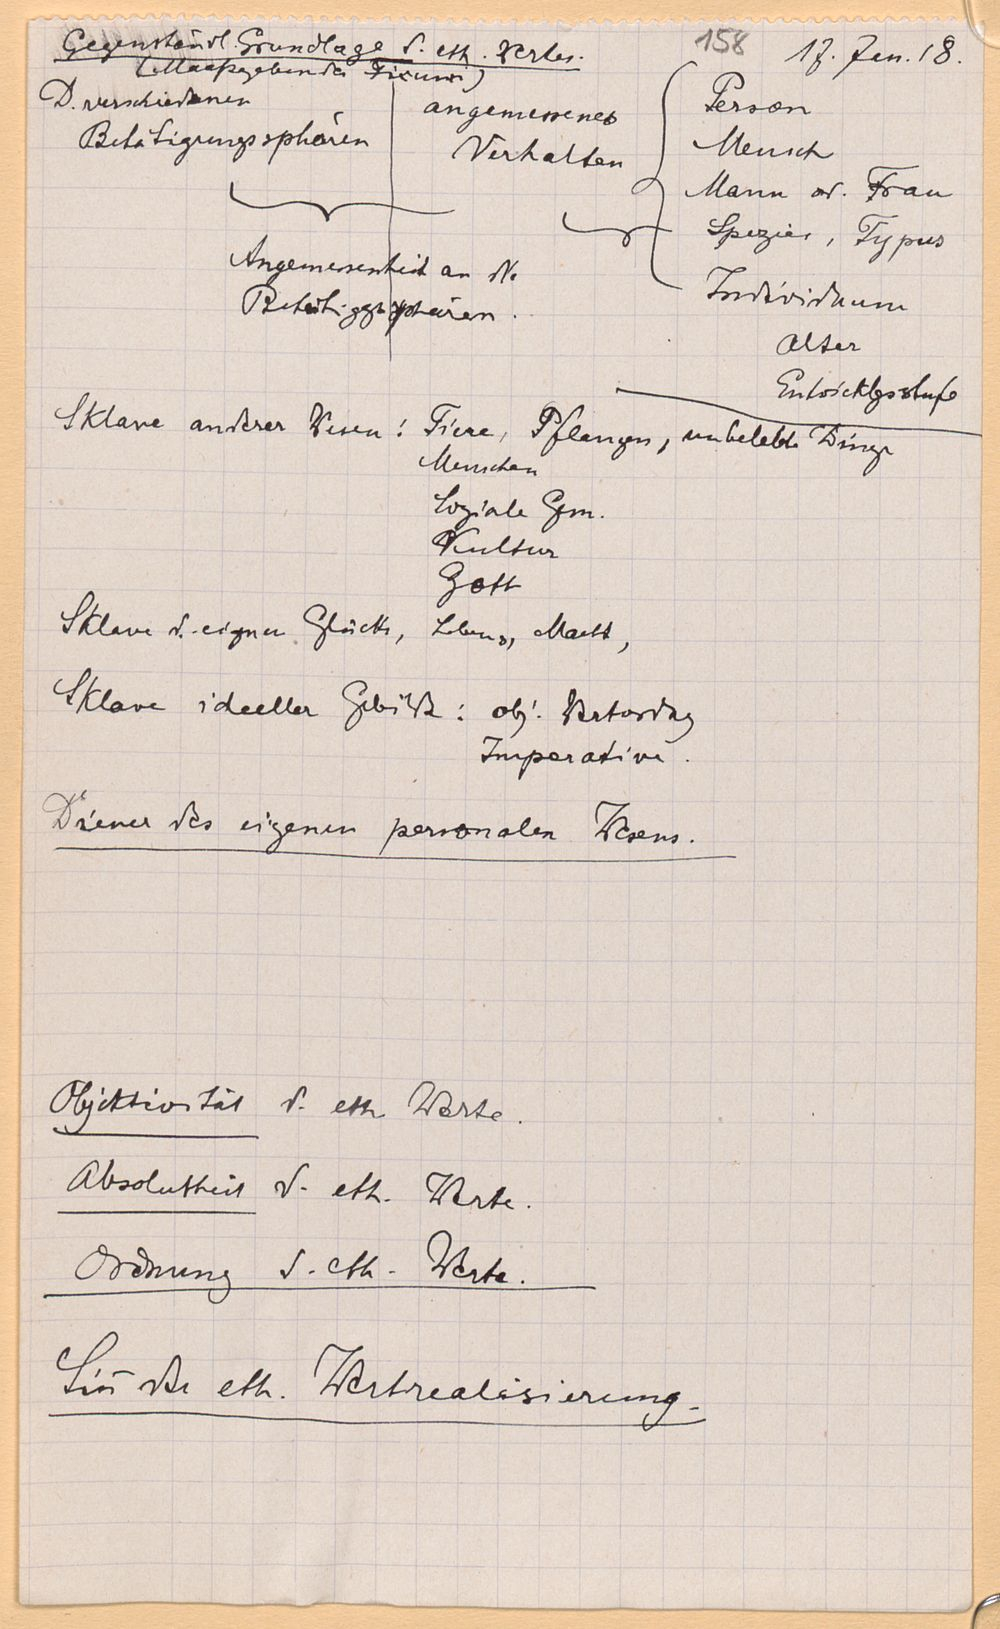 Gegenständl. Grundlage d. eth. Wertes.
158
17. Jan. 18.
(Maaßgebendes Fixum)
D. verschiedenen
Betätigungssphären
angemessenes
Verhalten
Person
Mensch
Mann od. Frau
Spezies, Typus
Individuum
Alter
Entwicklgsstufe
Angemessenheit an d.
Betätiggssphären.
Sklave anderer Wesen: Tiere, Pflanzen, unbelebte Dinge
Menschen
Soziale Gem.
Kultur
Gott
Sklave d. eignen Glücks, Lebens, Macht,
Sklave ideeller Gebilde: obj. Wertordng
Imperative.
Diener des eigenen personalen Wesens.
Objektivität d. eth Werte.
Absolutheit d. eth. Werte.
Ordnung d. eth. Werte.
Sin̄ der eth. Wertrealisierung.